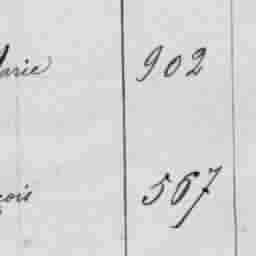 arie 902
çois 567